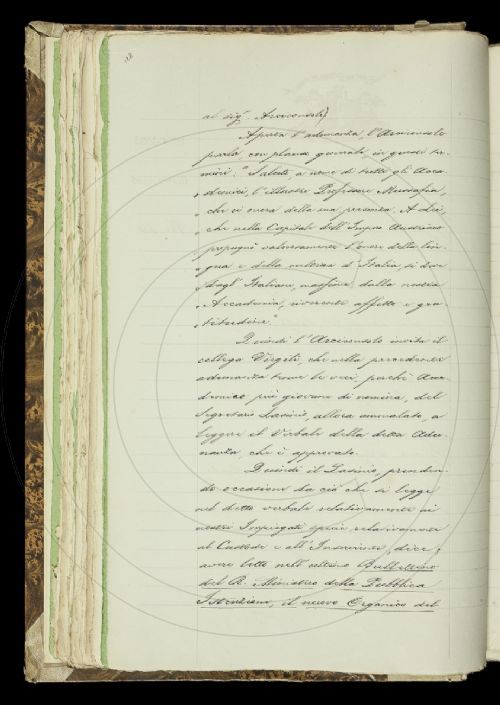 118
al sig.r Arciconsolo)
Aperta l'adunanza, l'Arciconsolo
parla, con plauso generale, in questi ter-
mini: "Saluto, a nome di tutti gli Acca-
" demici, l'illustre Professore Mussafia,
" che ci onora della sua presenza. A lui,
" che nella Capitale dell'Impero Austriaco
" propugnò valorosamente l'onore della lin-
" gua e della cultura d'Italia, si deve
" dagl'Italiani, massime dalla nostra
" Accademia, riverente affetto e gra-
" titudine."
Quindi l'Arciconsolo invita il
collega Vergoli, che nella precedente
adunanza tenne le veci, perchè Acca-
demico più giovane di nomina, del
Segretario Lasinio, allora ammalato, a
leggere il Verbale della detta Adu-
nanza, che è approvato.
Quindi il Lasinio, prenden-
do occasione da ciò che si legge
nel detto verbale relativamente ai
nostri Impiegati specie relativamente
al Custode e all'Inserviente, dice,
avere letto nell'ultimo Bullettino
del R. Ministero della Pubblica
Istruzione, il nuovo Organico del